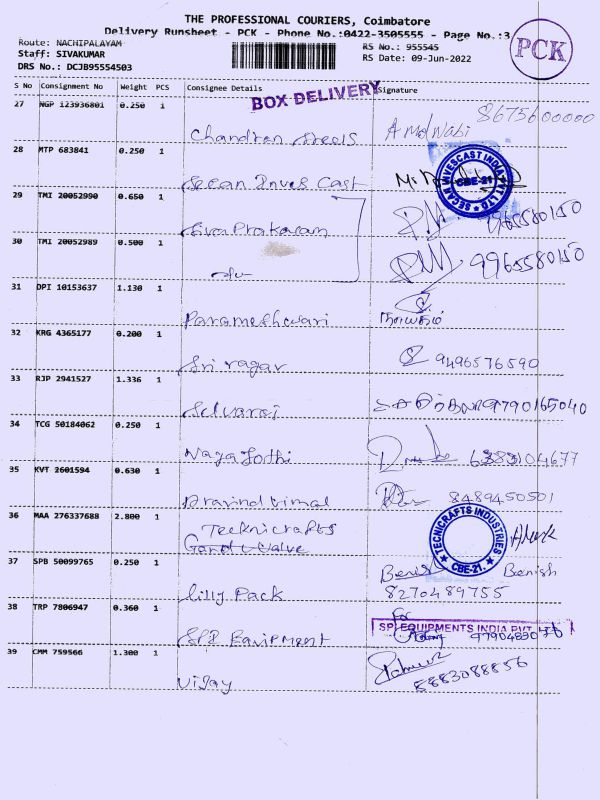 THE PROFESSIONAL COURIERS, Coimbatore
Delivery Runsheet - PCK - Phone No.:0422-3505555 - Page No.:3
Route: NACHIPALAYAM
Staff: SIVAKUMAR
DRS No.: DCJB95554503
RS No.: 955545
RS Date: 09-Jun-2022
PCK
S No Consignment No Weight PCS Consignee Details Signature
BOX DELIVERY
27 NGP 123936801 0.250 1
Chandran Steels A Md Nabi 8675600000
28 MTP 683841 0.250 1
Secan Inves Cast
SECAN INVESCAST INDIA PVT LTD CBE-21
29 TMI 20052990 0.650 1
Siva Prakaram 9965580150
30 TMI 20052989 0.500 1
9965580150
31 DPI 10153637 1.130 1
Parameshwari
32 KRG 4365177 0.200 1
Sri ragav 9496576590
33 RJP 2941527 1.336 1
Selvaraj 9790165040
34 TCG 50184062 0.250 1
Naga Jothi 6383104677
35 KVT 2601594 0.630 1
Aravind vimal 8489450501
36 MAA 276337688 2.800 1
Tecknicrafts
TECNICRAFTS INDUSTRIES CBE-21.
37 SPB 50099765 0.250 1
Lilly Pack Benish Benish
8270489755
38 TRP 7806947 0.360 1
SPI Equipment
For
SP EQUIPMENTS INDIA PVT LTD
39 CMM 759566 1.300 1
Vijay 8883088856